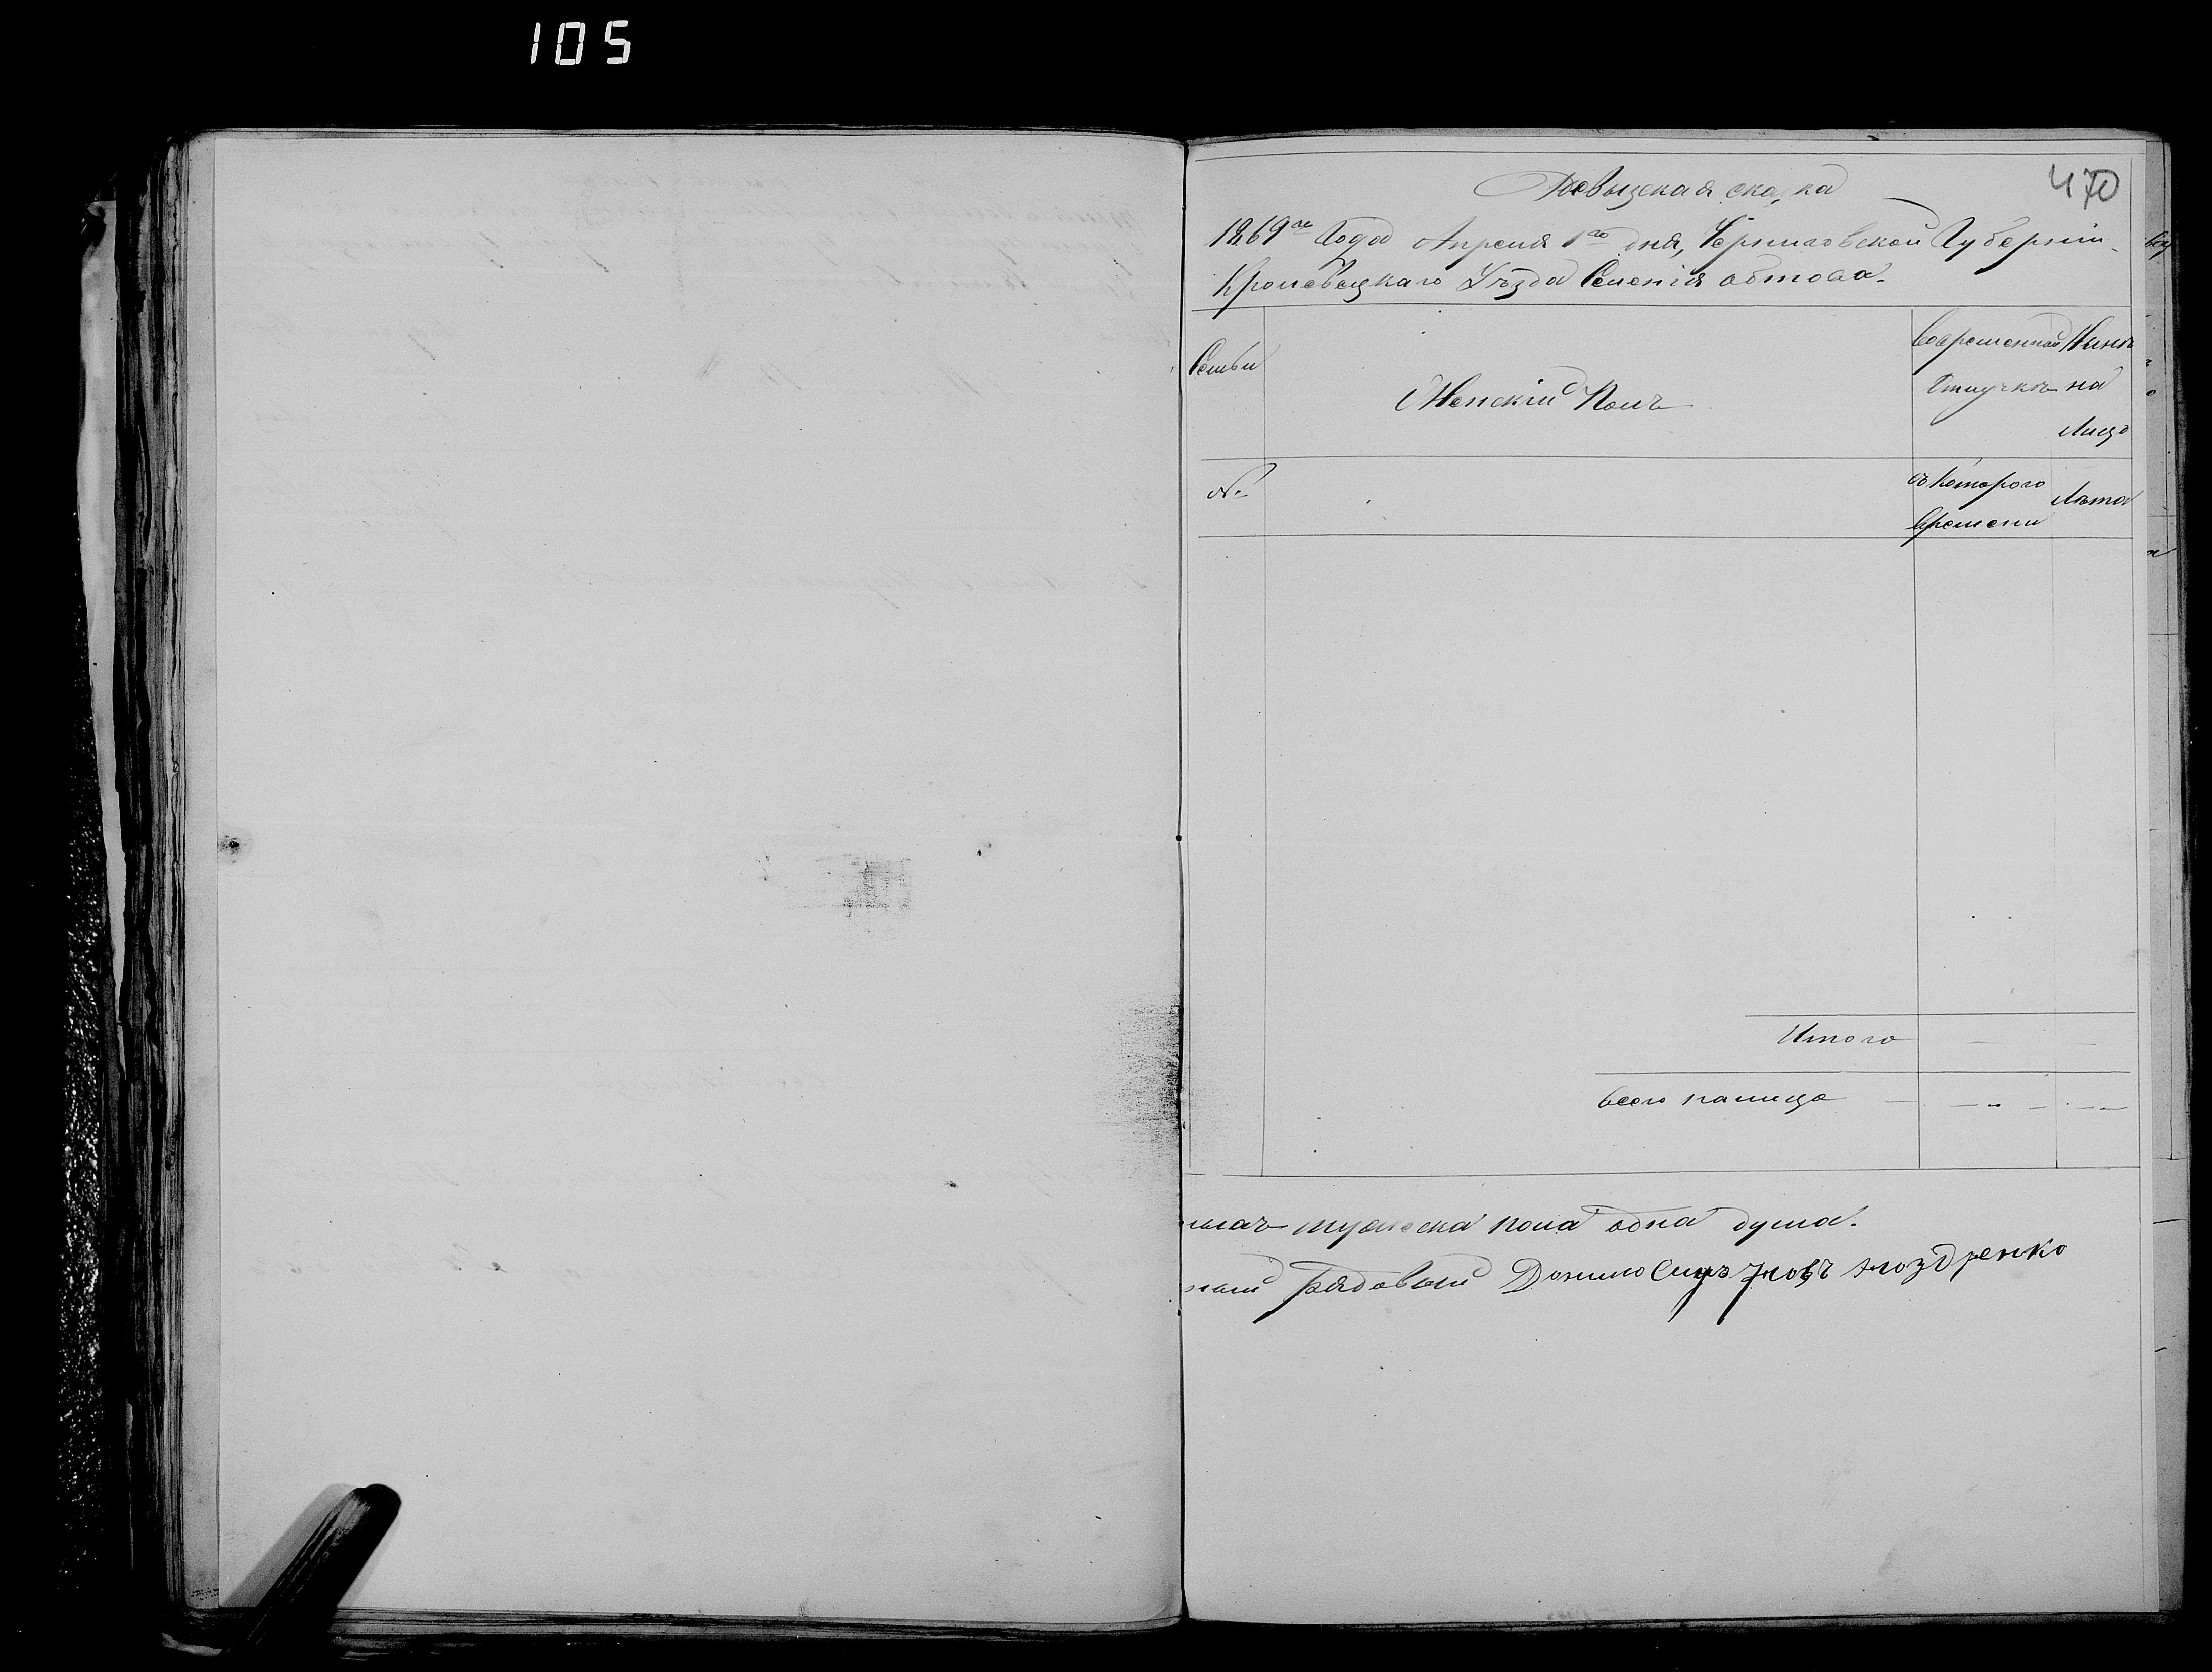 105
470
Ревизская сказка
1869го Года Апреля 1го дня, Черниговской Губерніи
Кролевецкаго Уѣзда Селенія Обтова.
Семьи
Женскій Полъ
Во временной Отлучкѣ
Нынѣ на Лицо
№
съ Котораго времени
Лѣта
Итого
Всего налице
мужеска пола одна душа.
рядовый Данило Ноздренко